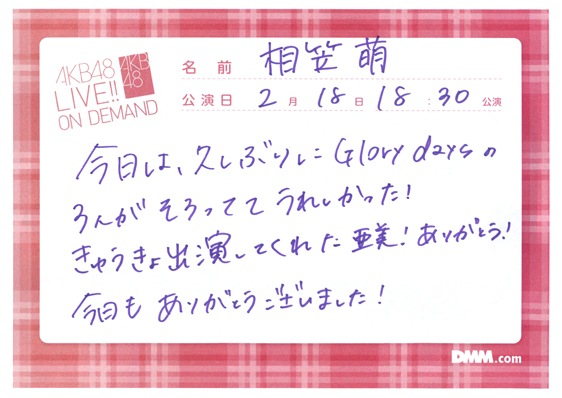 AKB48
LIVE!!
ON DEMAND
AKB
48
名前 相笠萌
公演日 2月18日18:30公演
今日は、久しぶりに Glory daysの
3人がそろってて うれしかった!
きゅうきょ出演してくれた亜美!ありがとう!
今日も ありがとうございました!
DMM.com